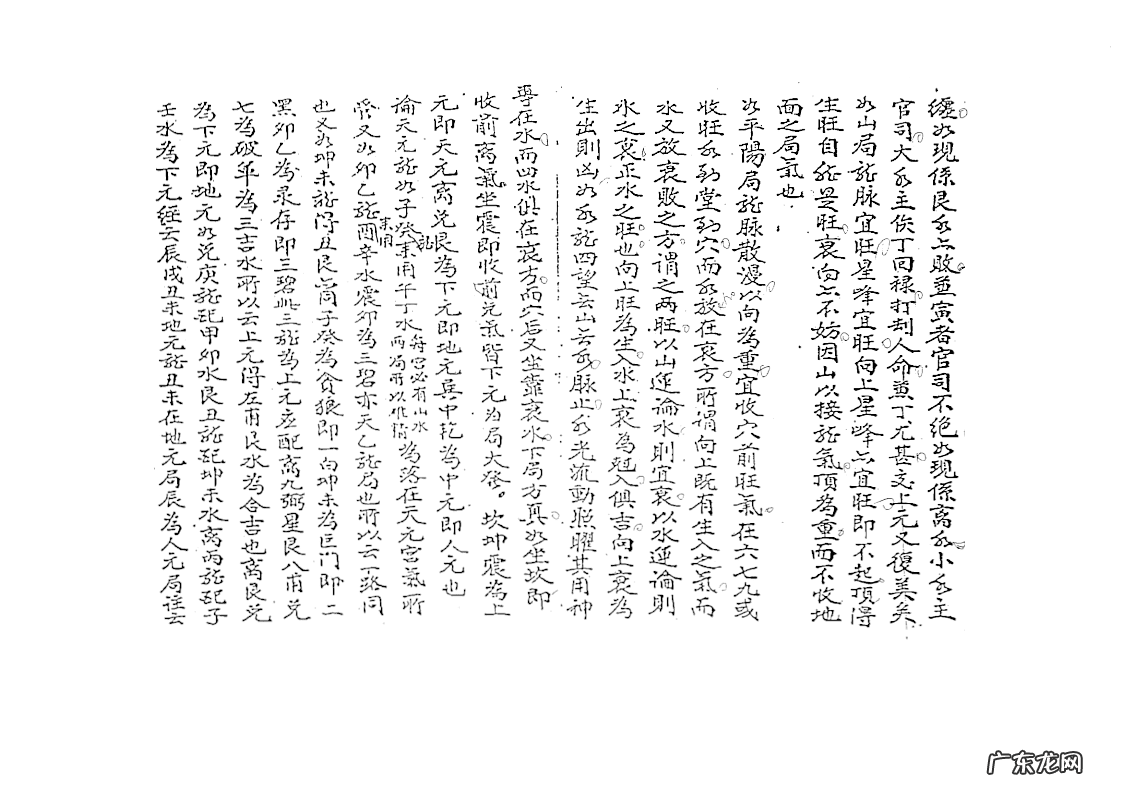 纏如現係艮水亦敗並寅者官司不絕如現係离水小水主
官司大水主傷丁回祿打刦人命黃丁尤甚交上元又復美矣
如山局龍脉宜旺星峰宜旺向上星峰亦宜旺即不起頂得
生旺自能是旺衰向亦不妨因山以接龍氣頂為重而不收地
面之局氣也
如平陽局龍脉散漫以向為重宜收穴前旺氣在六七九或
收旺水到堂到穴而水放在衰方所謂向上既有生入之氣而
水又放衰敗之方謂之两旺以山運論水則宜衰以水運論則
水之衰正水之旺也向上旺為生入水上衰為尅入俱吉向上衰為
生出則凶如水龍四望云山云水脉止水光流動照曜其用神
專在水而四水俱在衰方而穴后又坐靠衰水下局方真如坐坎即
收前离氣坐震即收前兌氣皆下元为局大發。坎坤震為上
元即天元离兌艮為下元即地元巽中乾為中元即人元也
論天元龍如子癸龍用午丁水為落在天元宮氣所
管又如卯乙龍酉辛水震卯為三碧亦天乙龍局也所以云一路同
也又如坤未龍得丑艮亦同子癸為貪狼即一白坤未為巨门即二
黑卯乙為彔存即三碧此三龍為上元应配离九弼星艮八甫兌
七為破軍為三吉水所以云上元得左甫艮水為合吉也离艮兌
為下元即地元如兌庚龍配甲卯水艮丑龍配坤未水离丙龍配子
壬水為下元經云辰戌丑未地元龍丑未在地元局辰為人元局註云
广东龙网